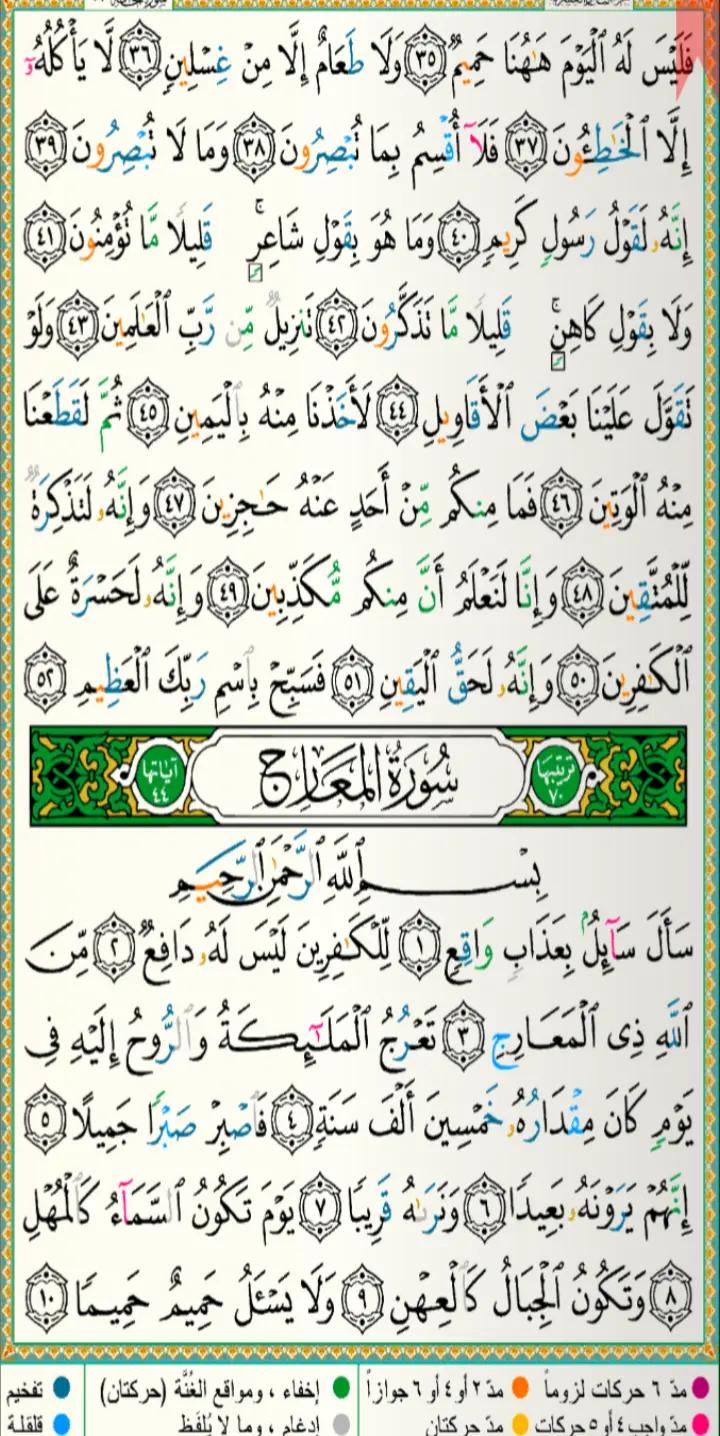 فَلَيْسَ لَهُ ٱلْيَوْمَ هَـٰهُنَا حَمِيمٌ ٣٥ وَلَا طَعَامٌ إِلَّا مِنْ غِسْلِينٍ ٣٦ لَّا يَأْكُلُهُۥٓ
إِلَّا ٱلْخَـٰطِـُٔونَ ٣٧ فَلَآ أُقْسِمُ بِمَا تُبْصِرُونَ ٣٨ وَمَا لَا تُبْصِرُونَ ٣٩
إِنَّهُۥ لَقَوْلُ رَسُولٍ كَرِيمٍ ٤٠ وَمَا هُوَ بِقَوْلِ شَاعِرٍ ۚ قَلِيلًا مَّا تُؤْمِنُونَ ٤١
وَلَا بِقَوْلِ كَاهِنٍ ۚ قَلِيلًا مَّا تَذَكَّرُونَ ٤٢ تَنزِيلٌ مِّن رَّبِّ ٱلْعَـٰلَمِينَ ٤٣ وَلَوْ
تَقَوَّلَ عَلَيْنَا بَعْضَ ٱلْأَقَاوِيلِ ٤٤ لَأَخَذْنَا مِنْهُ بِٱلْيَمِينِ ٤٥ ثُمَّ لَقَطَعْنَا
مِنْهُ ٱلْوَتِينَ ٤٦ فَمَا مِنكُم مِّنْ أَحَدٍ عَنْهُ حَـٰجِزِينَ ٤٧ وَإِنَّهُۥ لَتَذْكِرَةٌ
لِّلْمُتَّقِينَ ٤٨ وَإِنَّا لَنَعْلَمُ أَنَّ مِنكُم مُّكَذِّبِينَ ٤٩ وَإِنَّهُۥ لَحَسْرَةٌ عَلَى
ٱلْكَـٰفِرِينَ ٥٠ وَإِنَّهُۥ لَحَقُّ ٱلْيَقِينِ ٥١ فَسَبِّحْ بِٱسْمِ رَبِّكَ ٱلْعَظِيمِ ٥٢
ترتيبها ٧٠ سُورَةُ المَعَارِجِ آياتها ٤٤
بِسْمِ ٱللَّهِ ٱلرَّحْمَـٰنِ ٱلرَّحِيمِ
سَأَلَ سَآئِلٌۢ بِعَذَابٍ وَاقِعٍ ١ لِّلْكَـٰفِرِينَ لَيْسَ لَهُۥ دَافِعٌ ٢ مِّنَ
ٱللَّهِ ذِى ٱلْمَعَارِجِ ٣ تَعْرُجُ ٱلْمَلَـٰٓئِكَةُ وَٱلرُّوحُ إِلَيْهِ فِى
يَوْمٍ كَانَ مِقْدَارُهُۥ خَمْسِينَ أَلْفَ سَنَةٍ ٤ فَٱصْبِرْ صَبْرًا جَمِيلًا ٥
إِنَّهُمْ يَرَوْنَهُۥ بَعِيدًا ٦ وَنَرَىٰهُ قَرِيبًا ٧ يَوْمَ تَكُونُ ٱلسَّمَآءُ كَٱلْمُهْلِ
٨ وَتَكُونُ ٱلْجِبَالُ كَٱلْعِهْنِ ٩ وَلَا يَسْـَٔلُ حَمِيمٌ حَمِيمًا ١٠
مدّ ٦ حركات لزوماً مدّ ٢ أو ٤ أو ٦ جوازاً إخفاء ، ومواقع الغُنَّة (حركتان) تفخيم
مدّ واجب ٤ أو ٥ حركات مدّ حركتان إدغام ، وما لا يُلفَظ قلقلة